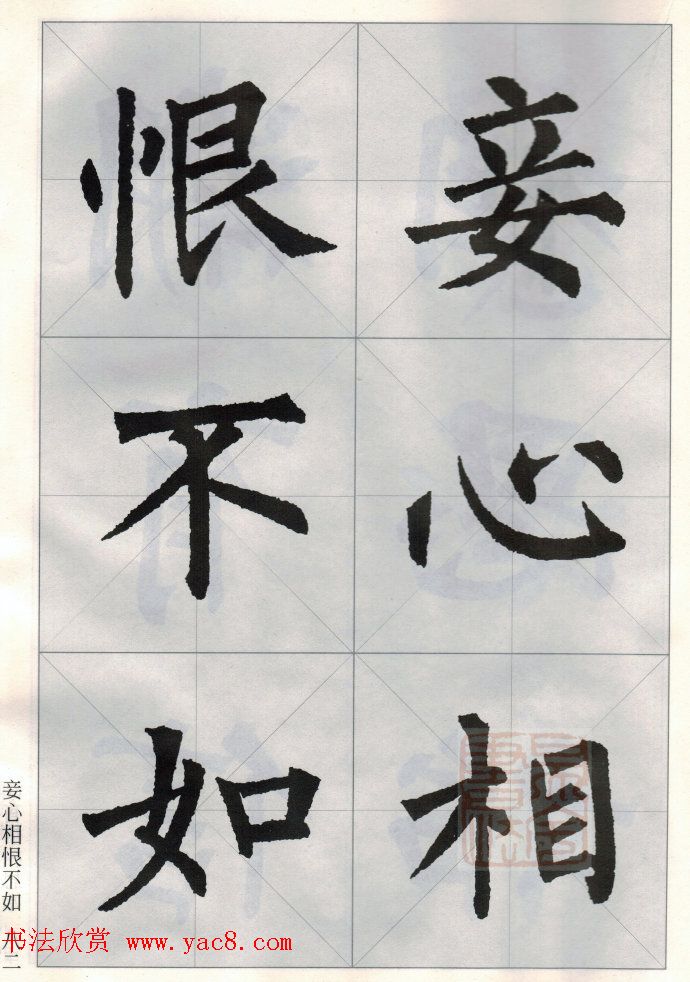 妾心相
恨不如
妾心相恨不如
书法欣赏 www.yac8.com